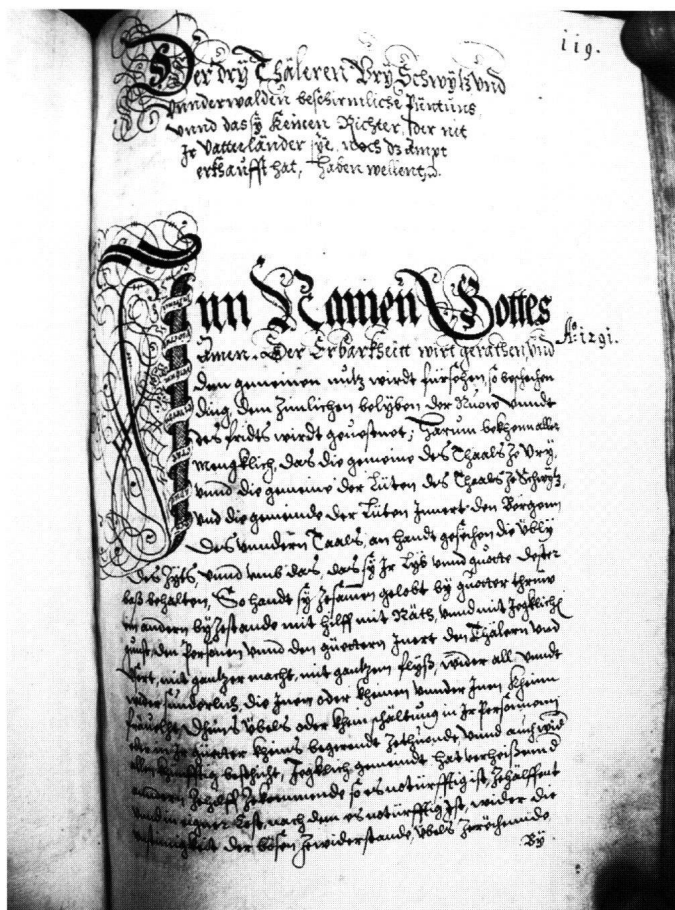 119.
Der drÿ Thäleren Vry Schwÿtz vnd
vnnderwalden beschirmliche Püntnus
vnnd das sÿ keinen Richter, der nit
Jr Vatterländer sÿe, noch dz Ampt
erkhaufft hat, haben wellent,
Inn Namen Gottes
Aº: 1291.
Amen. Der Erbarkheitt wirt gerathen, vnd
dem gemeinen nutz wirdt fürsehen, so beschechen
ding, dem Zimlichen belÿben der Ruow vnndt
des fridts wirdt geuestnet, Harum bekhenn aller
mengklich, das die gemeine des Thaals Zo Vry,
vnnd die gemeine der Lüten des Thaals Zo Schwÿtz,
vnd die gemeinde der Lüten Jnnert den Bergenn
des vnndern Taals, an handt gesechen die übly
des Zÿts, vnnd vmb das, das sÿ Jr Lÿb vnnd guotte dester
baß behalten, So handt sÿ Zesamen gelobt bÿ guotter threuw
ein andern bÿ Zestande mit hilff mit Räth, vnnd mit Jegklich
gunst, den Personen vnnd den güettern Jnert den Thälern vnd
vßert, mit gantzer macht, mit gantzem flÿß, wider all vnndt
wider sunderlich, die Jnen oder khenen vnnder Jnen kheinn
fräuell, Dheins übels oder khein schältung in Jr Personnen
oder in Jr güetter kheins begerendt Zethuonde, vnnd auch wie
allen künfftig beschicht, Jegklich gemeindt hat verheißenn d
anndern Zehilff Zekommende so es notürfftig ist, Zehälffent
vnnd in eigner Cost, nach dem es notürfftig ist, wider die
vnsinnigkeit der bösen Zewiderstande, übels Zerächennde
Bÿ